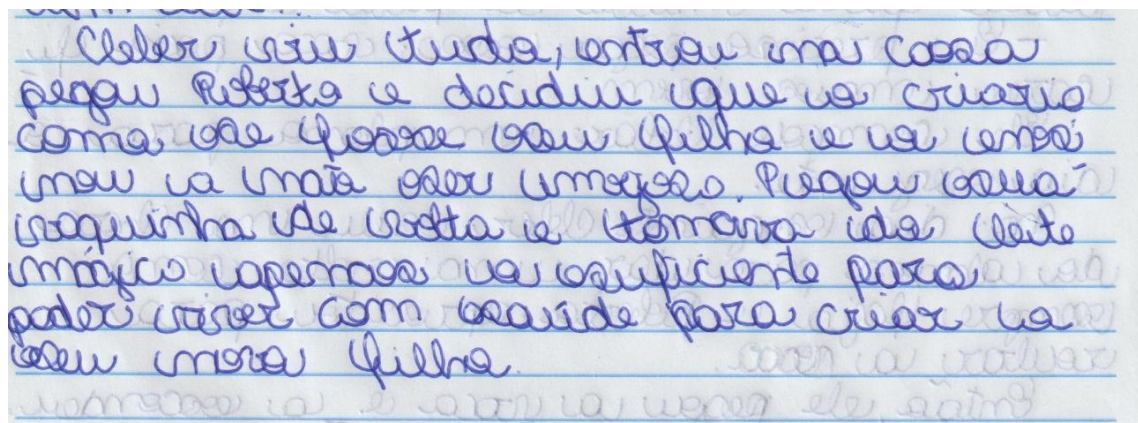 Cleber viu tudo, entrou na casa
pegou Roberta e decidiu que a criaria
como se fosse seu filha e a ensi
nou a não ser invejosa. Pegou sua
vaquinha de volta e tomava do leite
mágico apenas o suficiente para
poder viver com saúde para criar a
seu nova filha.